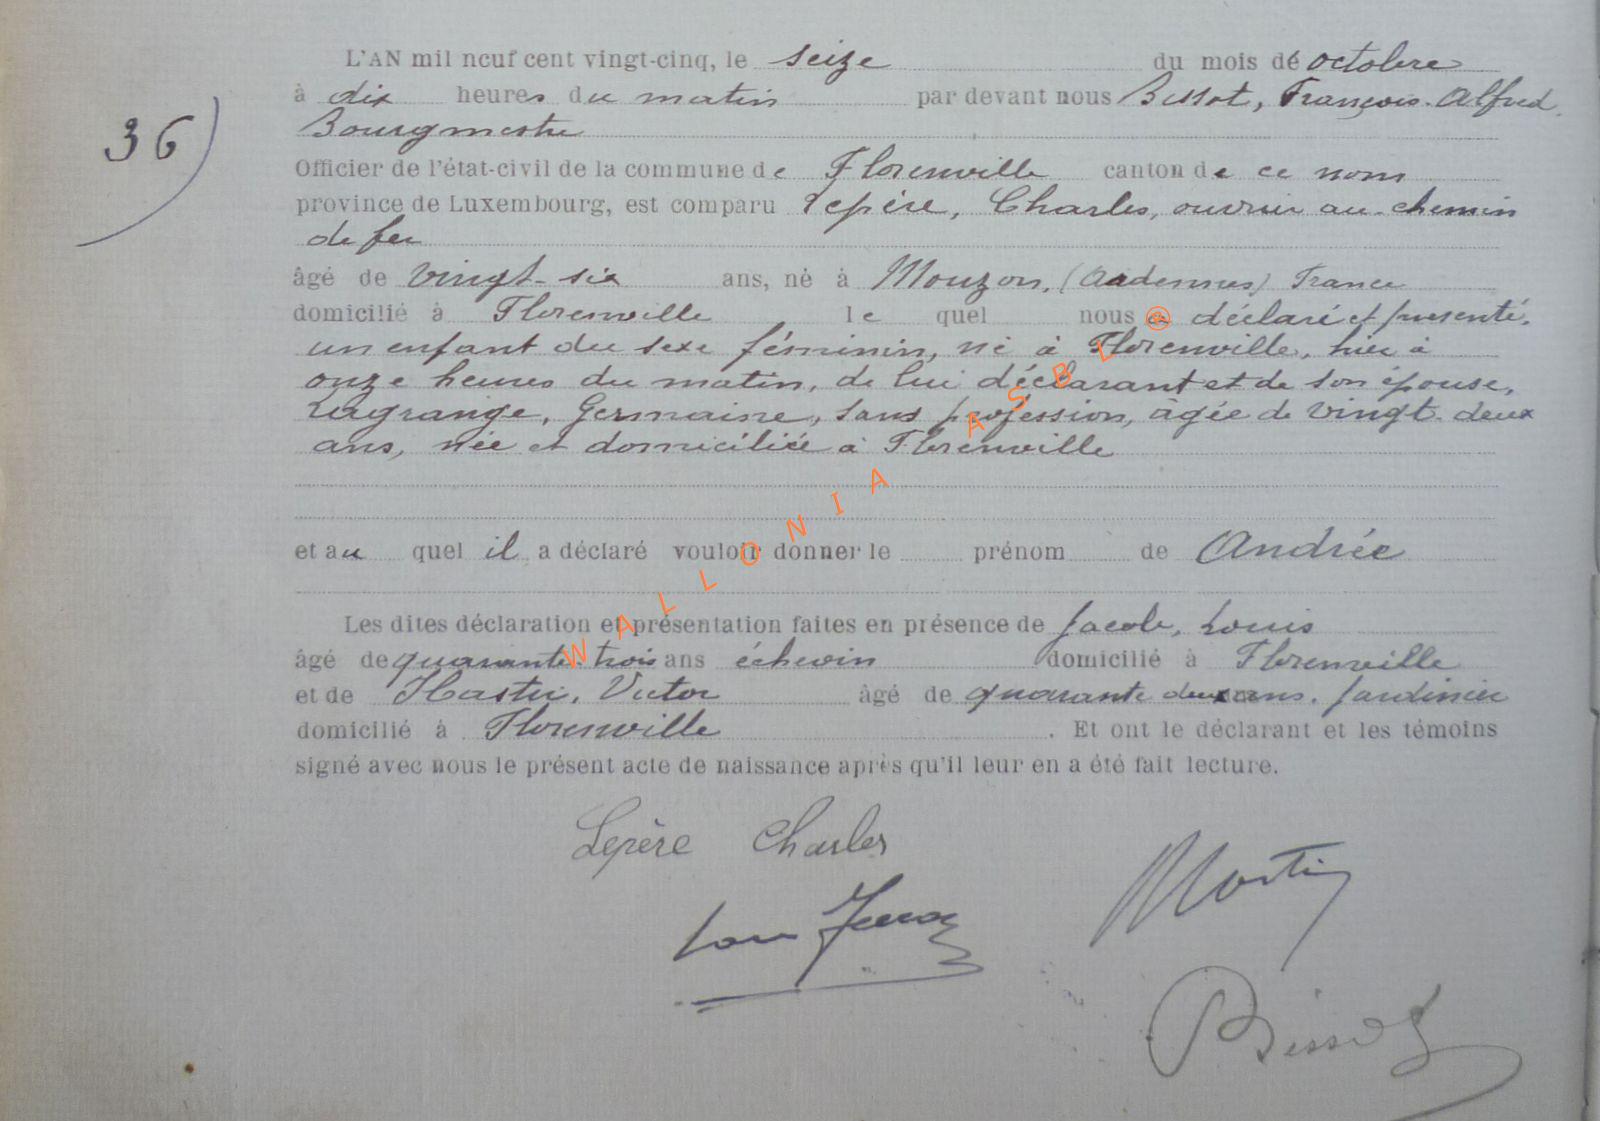 L'AN mil neuf cent vingt-cinq, le seize du mois de octobre
36) à dix heures du matin par devant nous Bissot, François-Alfred,
Bourgmestre
Officier de l'état-civil de la commune de Florenville canton de ce nom
province de Luxembourg, est comparu Lepère, Charles, ouvrier au chemin
de fer
âgé de vingt-six ans, né à Mouzon, (Ardennes) France
domicilié à Florenville le quel nous a déclaré et présenté,
un enfant du sexe féminin, né à Florenville, hier à
onze heures du matin, de lui déclarant et de son épouse,
Lagrange, Germaine, sans profession, âgée de vingt-deux
ans, née et domiciliée à Florenville
et au quel il a déclaré vouloir donner le prénom de Andrée
Les dites déclaration et présentation faites en présence de Jacob, Louis
âgé de quarante-trois ans échevin domicilié à Florenville
et de Victor âgé de quarante deux ans, jardinier
domicilié à Florenville . Et ont le déclarant et les témoins
signé avec nous le présent acte de naissance après qu'il leur en a été fait lecture.
Lepère Charles
Bissot
WALLONIA ASBL @